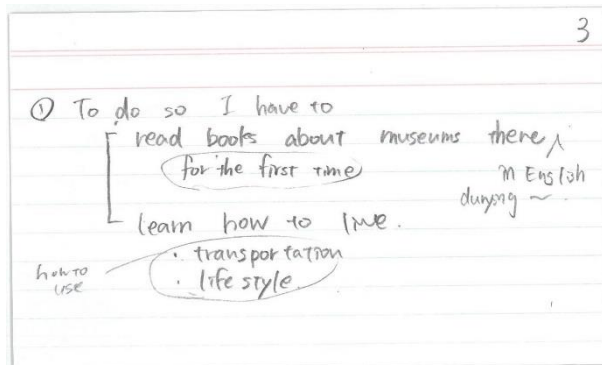 3
① To do so I have to
read books about museums there
in English
for the first time
during ~
learn how to live.
· transportation
· life style
how to
use